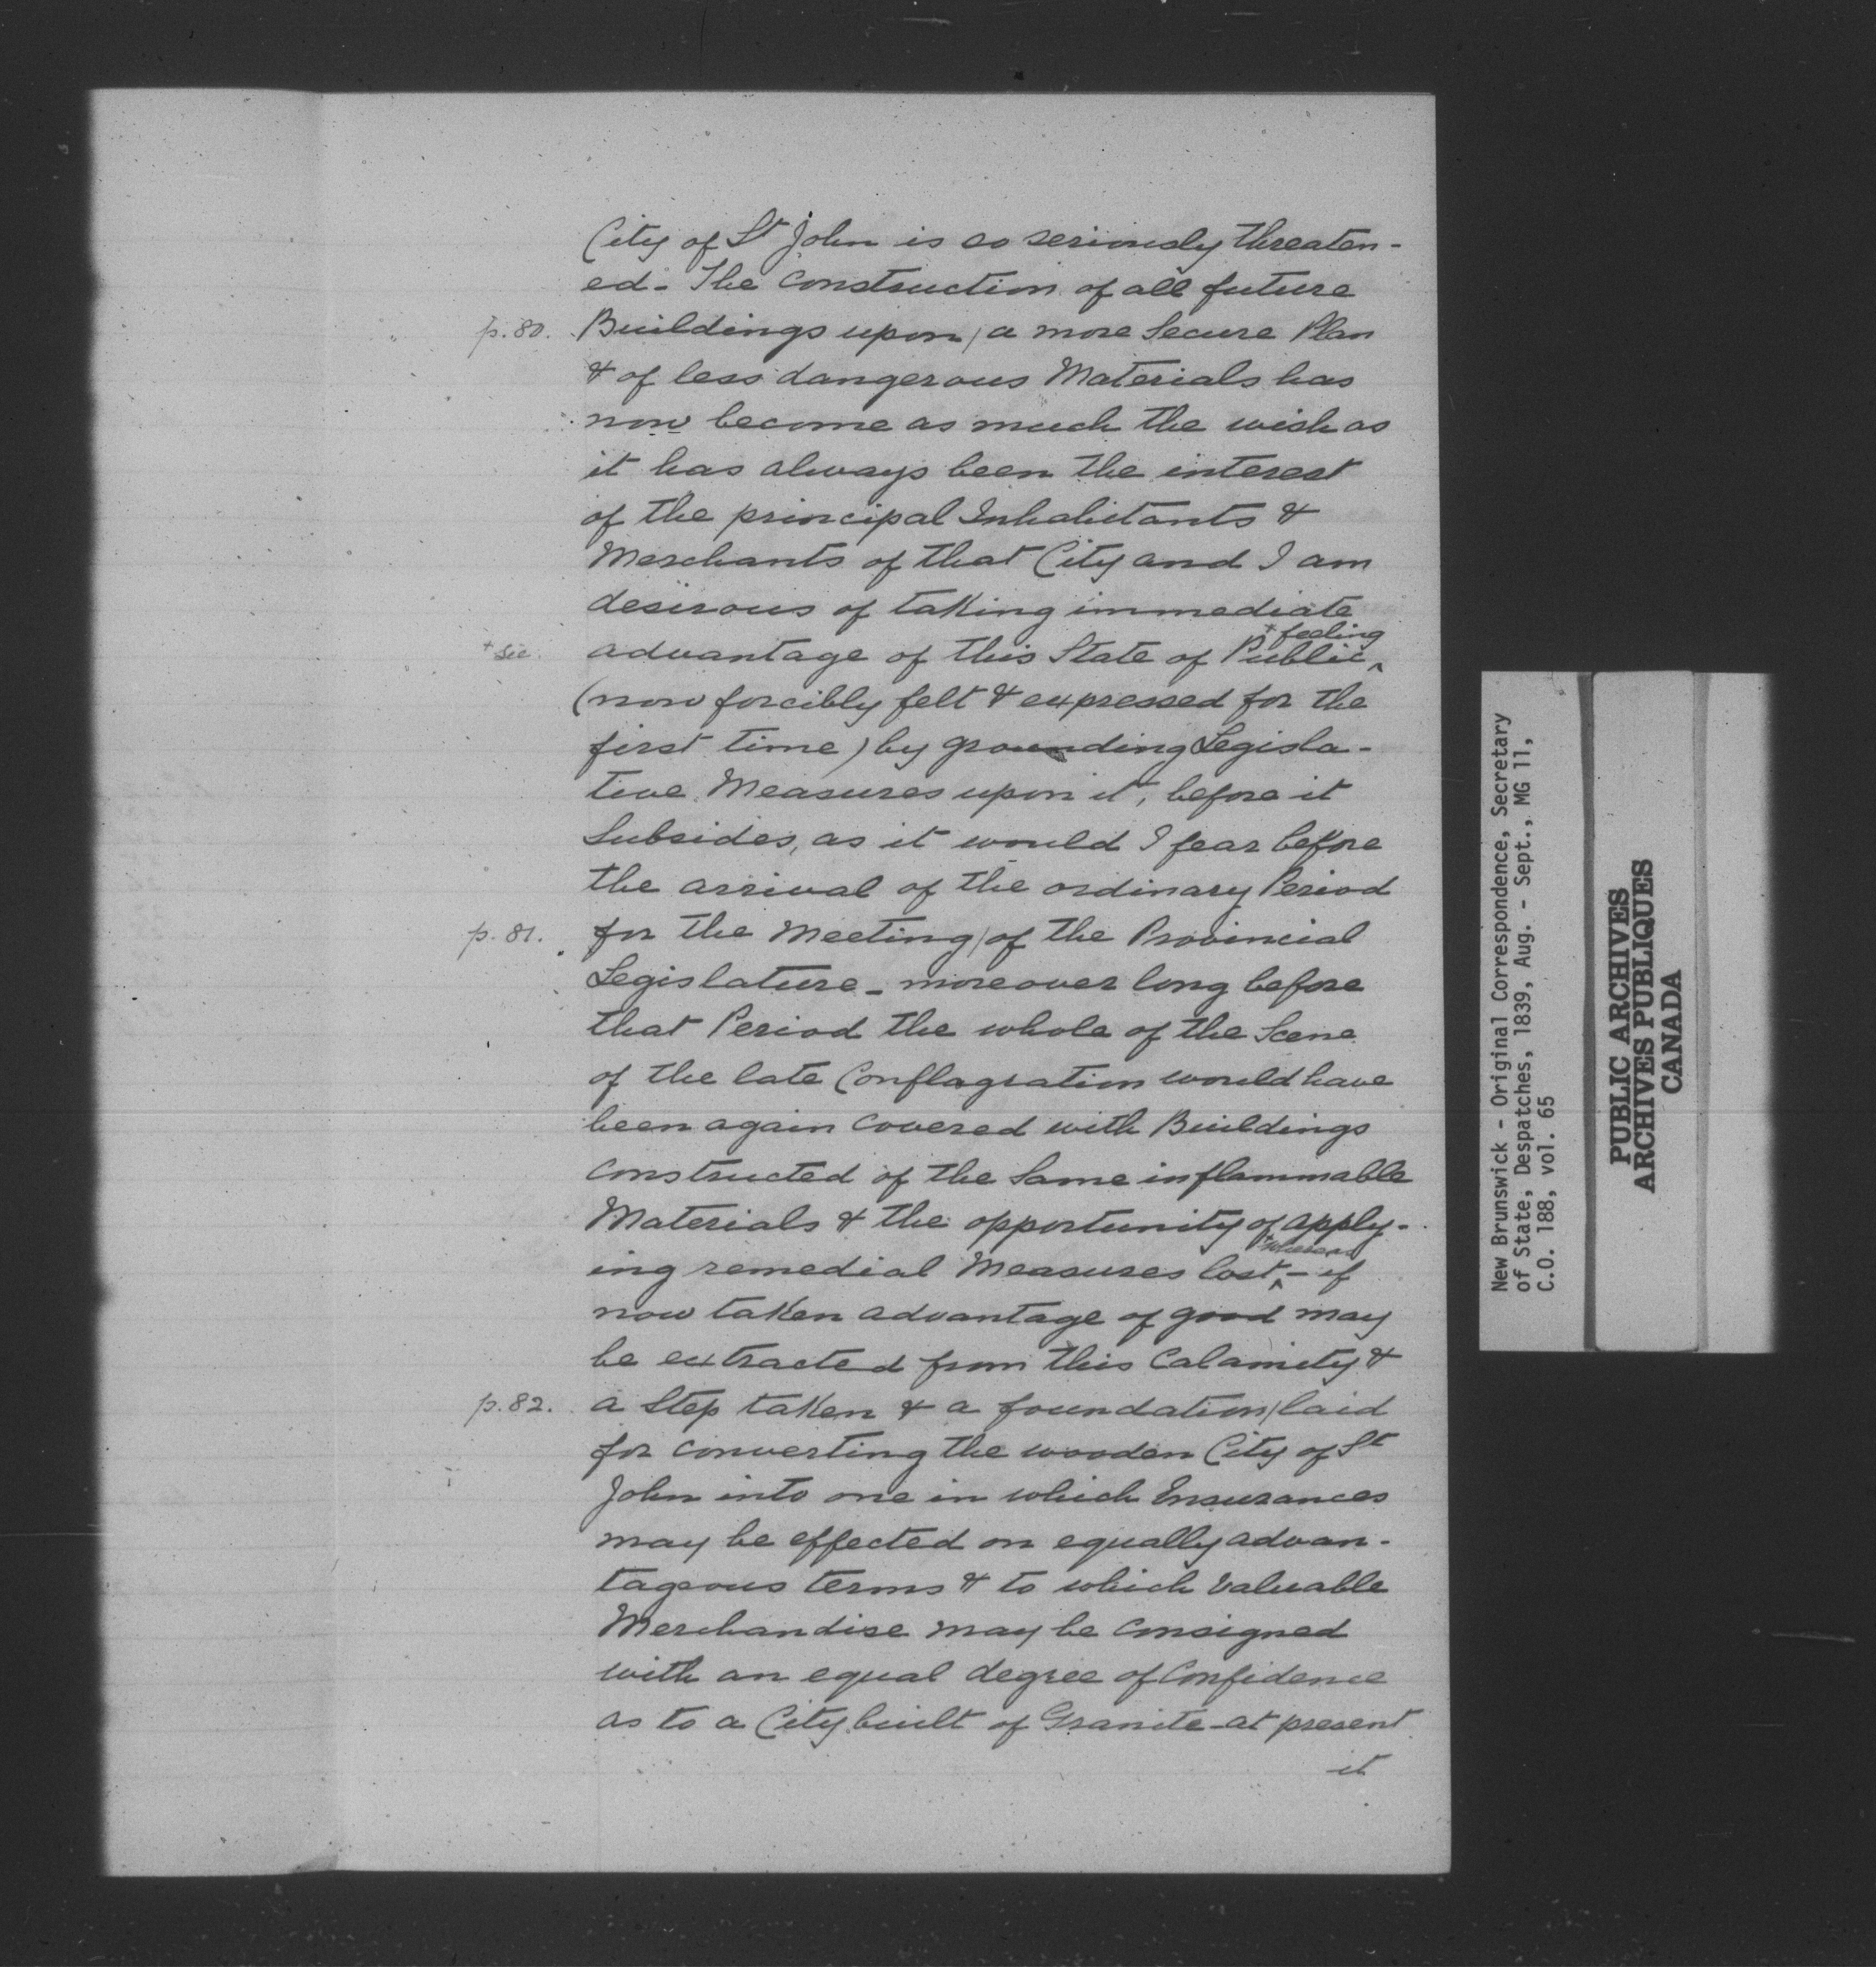 City of St John is so seriously threaten-
ed - The Construction of all future
p. 80. Buildings upon / a more Secure Plan
& of less dangerous Materials has
now become as much the wish as
it has always been the interest
of the principal Inhabitants &
Merchants of that City and I am
desirous of taking immediate
+ feeling
+ sic. advantage of this State of Public ^
(now forcibly felt & expressed for the
first time) by grounding Legisla-
tive Measures upon it, before it
Subsides, as it would I fear before
the arrival of the ordinary Period
p. 81. for the Meeting / of the Provincial
Legislature - moreover long before
that Period the whole of the Scene
of the late Conflagration would have
been again covered with Buildings
constructed of the Same inflammable
Materials & the opportunity of apply-
+ whereas
ing remedial Measures lost ^ - if
now taken advantage of good may
be extracted from this Calamity &
p. 82. a Step taken & a foundation / laid
for converting the wooden City of St
John into one in which Insurances
may be effected on equally advan-
tageous terms & to which valuable
Merchandise may be Consigned
with an equal degree of Confidence
as to a City built of Granite - at present
it
New Brunswick - Original Correspondence, Secretary
of State, Despatches, 1839, Aug. - Sept., MG 11,
C.O. 188, vol. 65
PUBLIC ARCHIVES
ARCHIVES PUBLIQUES
CANADA